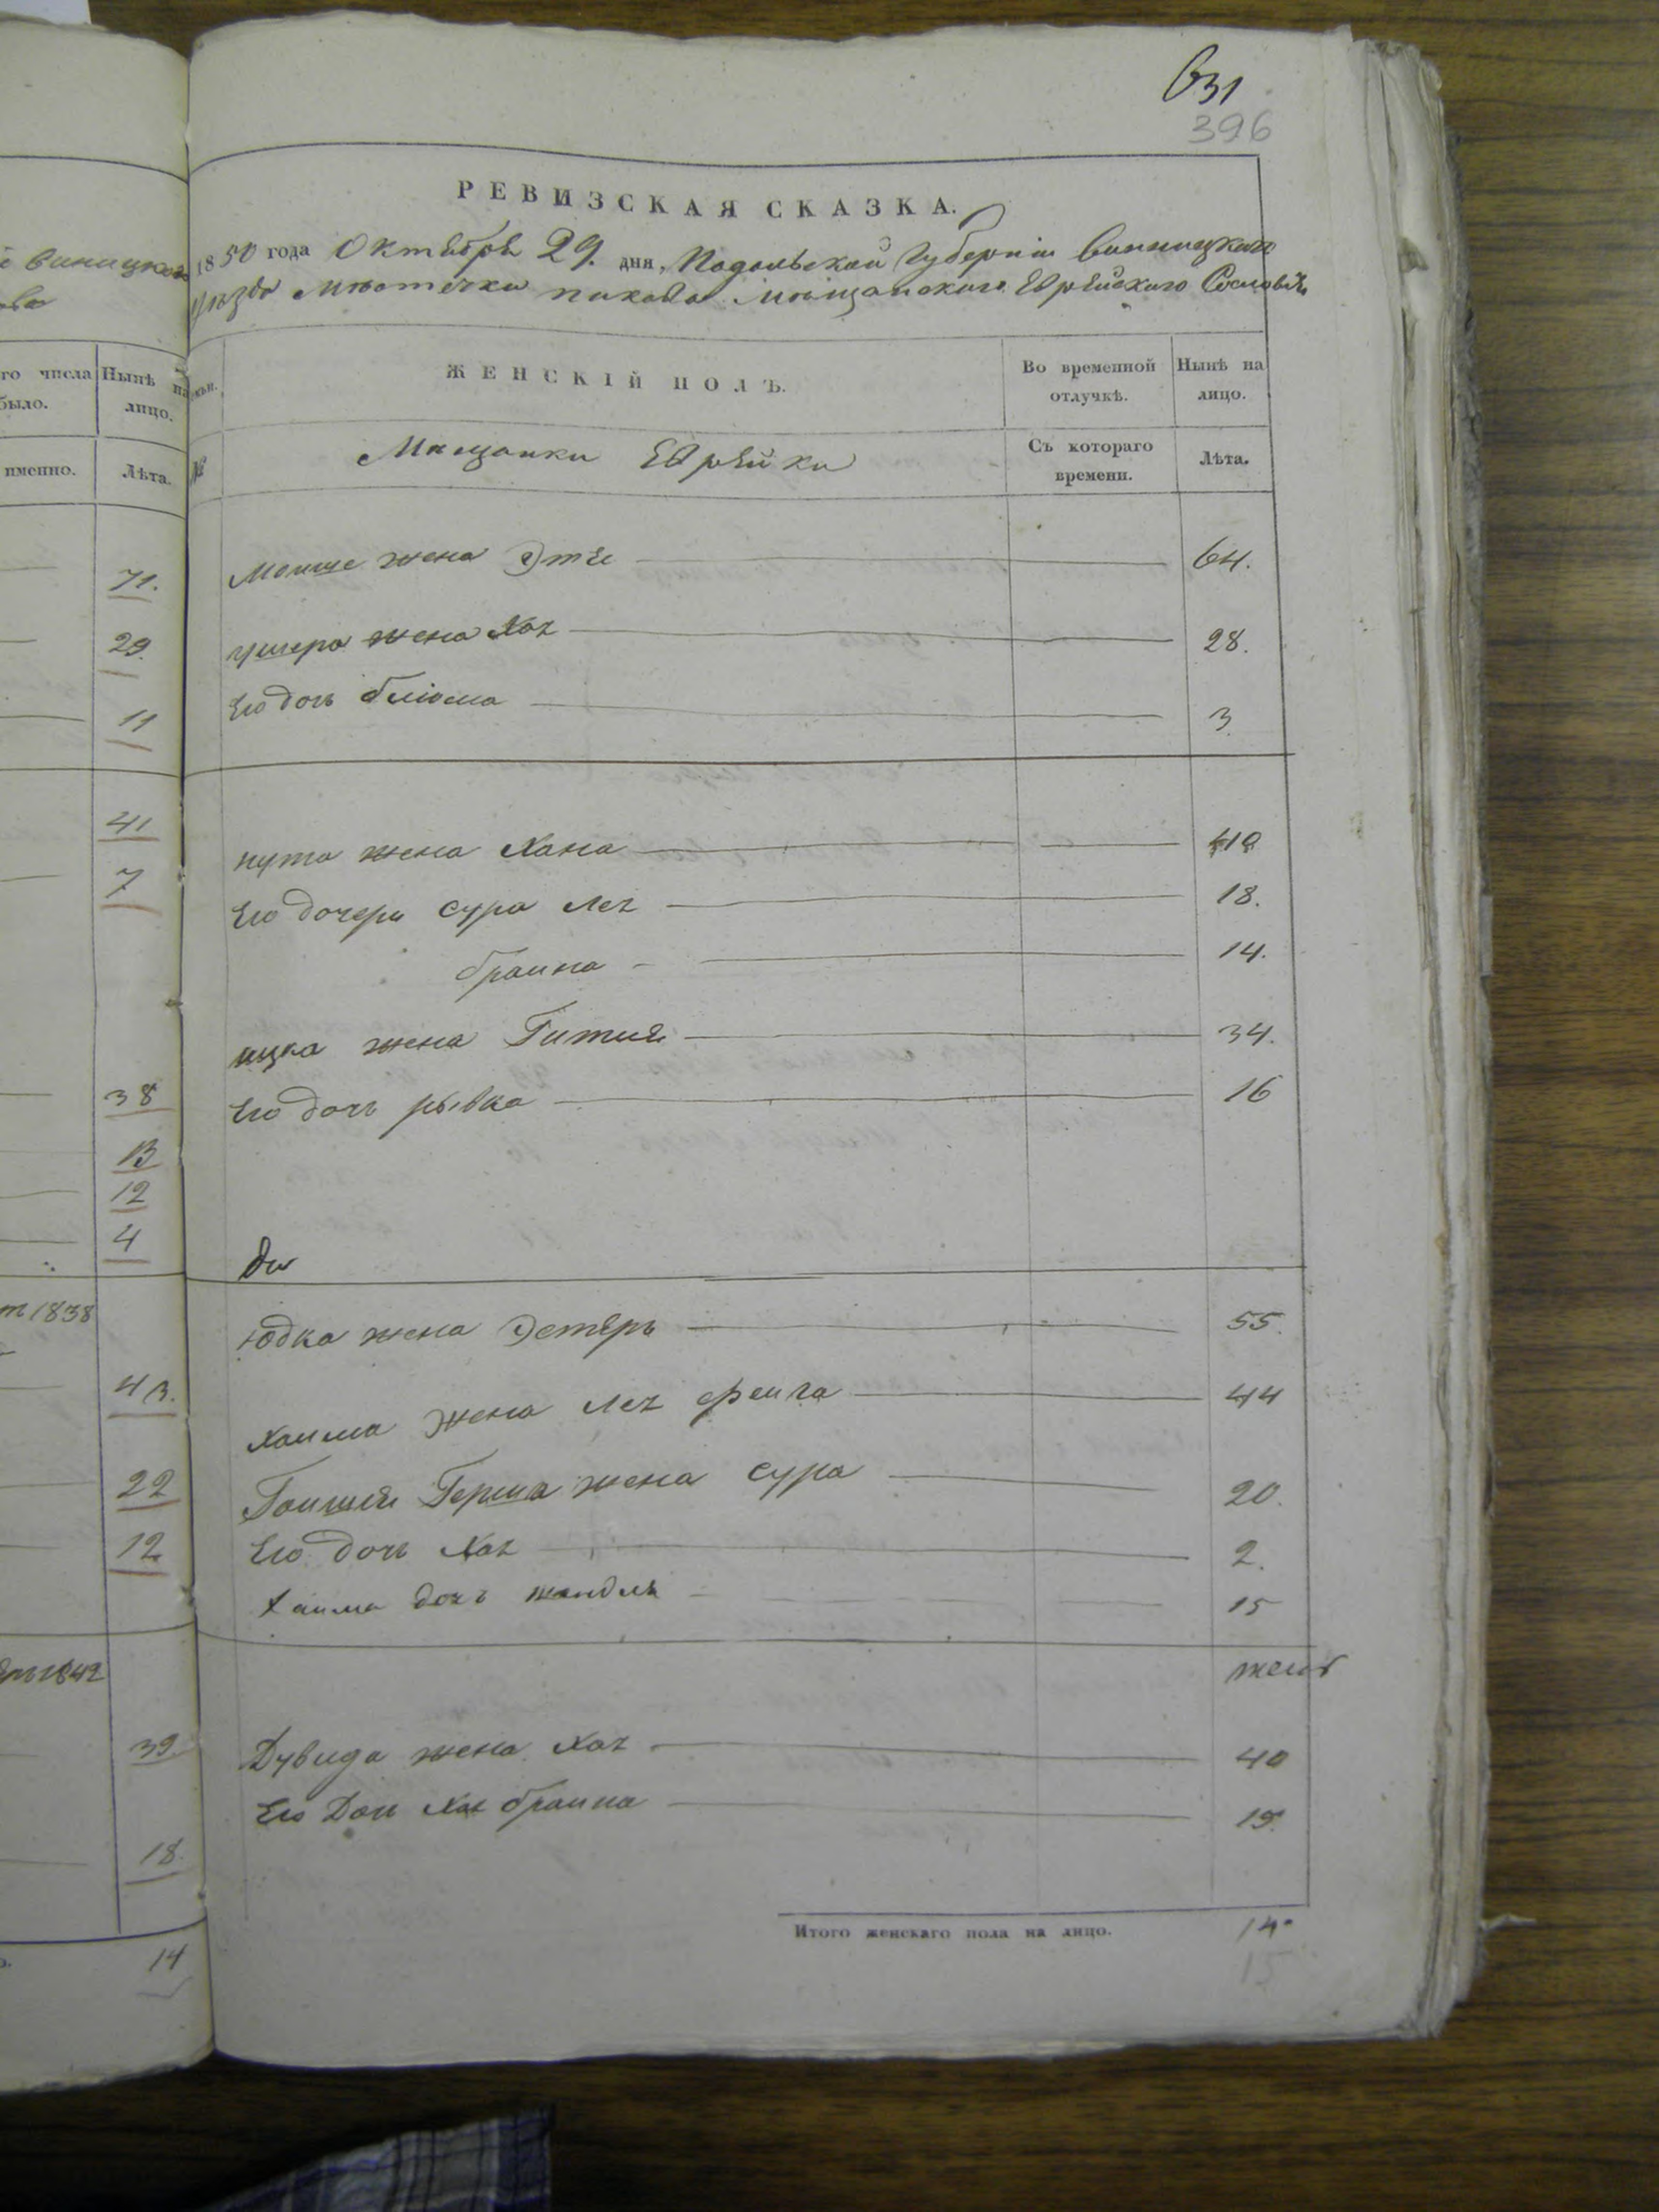 631
396
РЕВИЗСКАЯ СКАЗКА.
1850 года Октября 29. дня, Подольской Губернии Винницкого
уѣзда Мѣстечка Пикова Мѣщанского Еврейского Сословія
ЖЕНСКІЙ ПОЛЪ.
Во временной отлучкѣ.
Нынѣ на лицо.
Мещанки Еврейки
Съ котораго времени.
Лѣта.
Мошце жена Этя 64.
ушера жена Хая 28.
Его дочь блюма 3
нута жена Хана 40
Его дочери сура Лея 18.
браина 14.
ицка жена Гития 34.
Его дочь рывка 16
юдка жена Эстеръ 55.
Хаима жена Лея феига 44
Герша жена сура 20.
Его дочь Хая 2.
Хаима дочь 15
Дувида жена Хая 40
Его Дочь Хая браина 19.
Итого женскаго пола на лицо. 14
15
Винницкого
го числа
было.
Нынѣ на
лицо.
именно.
Лѣта.
71.
29.
11
41
7
38
13
12
4
1838
43.
22
12
1842
39.
18.
14